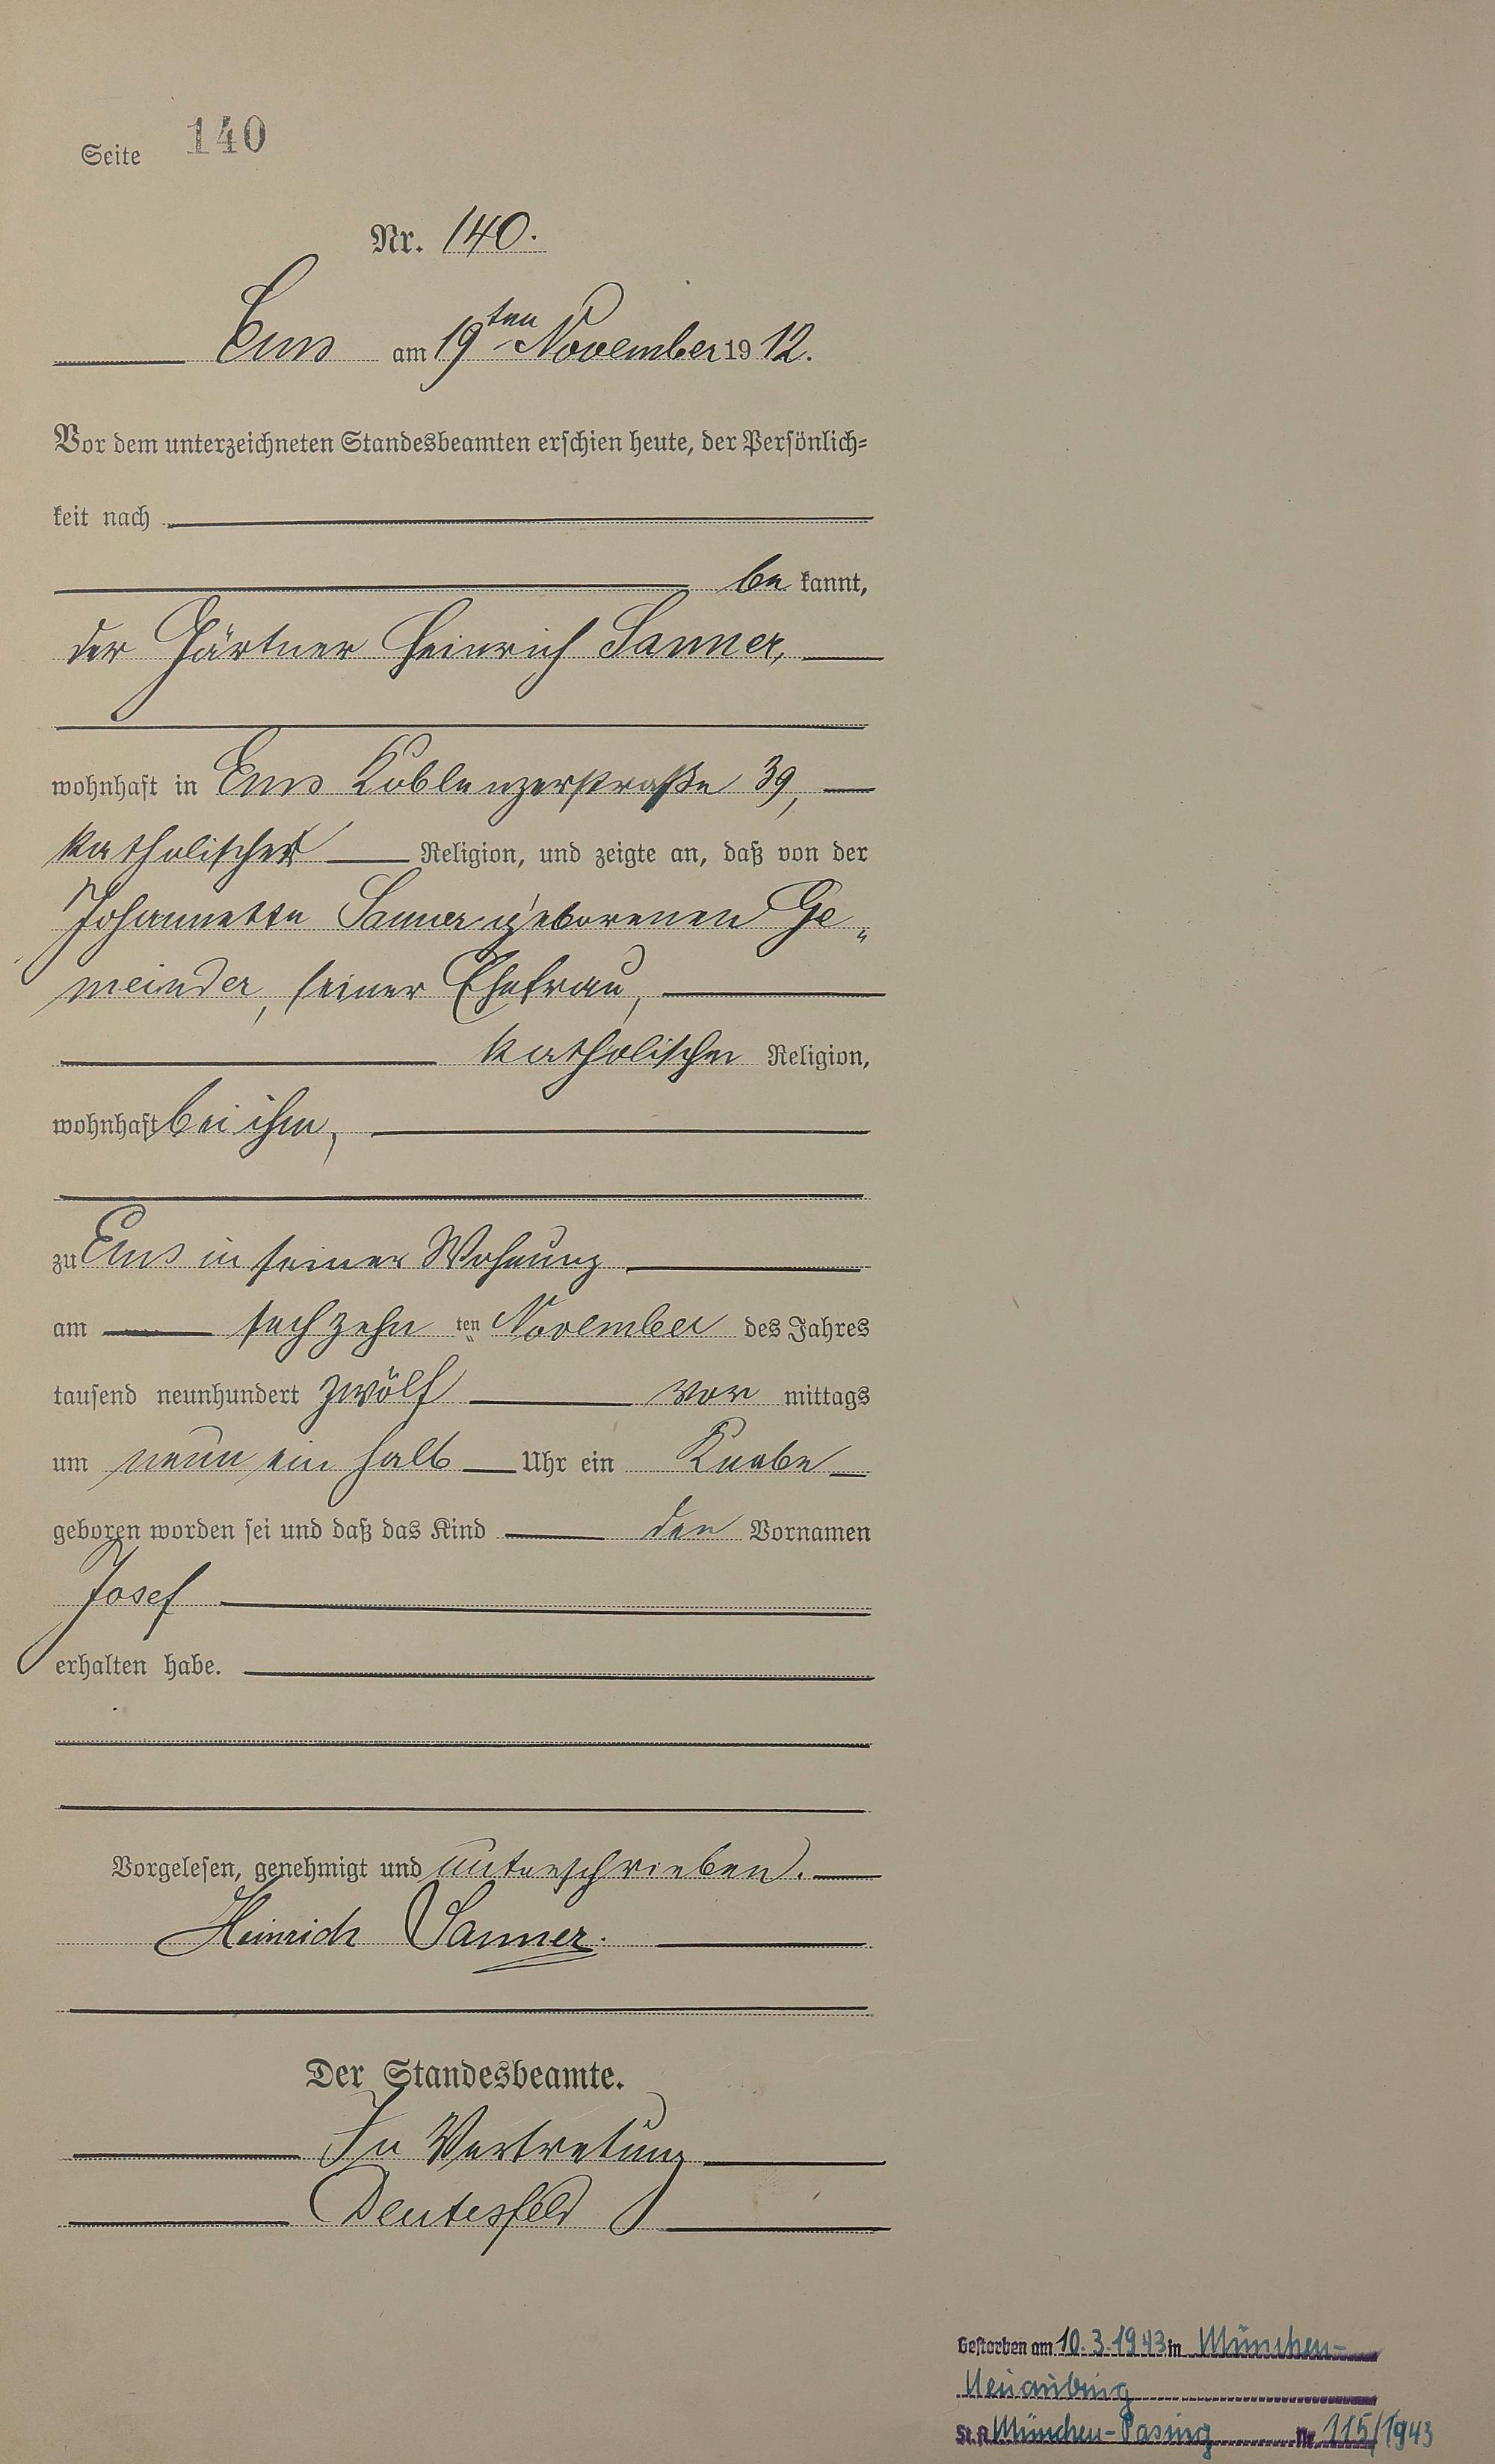 Seite 140
Nr. 140.
Ems am 19ten November 1912.
Vor dem unterzeichneten Standesbeamten erschien heute, der Persönlich=
keit nach
be kannt,
der Gärtner Heinrich Sanner,
wohnhaft in Ems Koblenzerstraße 39,
katholischer Religion, und zeigte an, daß von der
Johannette Sanner geborenen Ge„
meinder, seiner Ehefrau,
katholischer Religion,
wohnhaft bei ihm,
zu Ems in seiner Wohnung
am sechzehn ten November des Jahres
tausend neunhundert zwölf vor mittags
um neun ein halb Uhr ein Knabe
geboren worden sei und daß das Kind den Vornamen
Josef
erhalten habe.
Vorgelesen, genehmigt und unterschrieben.
Heinrich Sanner.
Der Standesbeamte.
In Vertretung
Deutesfeld
Gestorben am 10.3.1943 in München-
Neuaubing
St.A. München-Pasing Nr. 115/1943